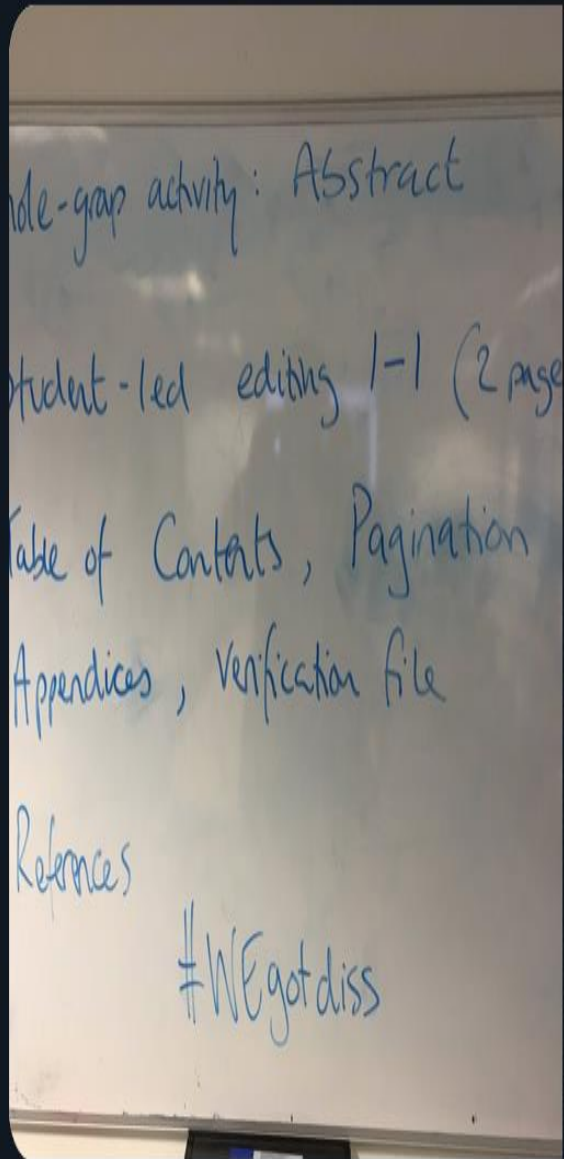 ole-group activity: Abstract
Student-led editing 1-1 (2 page
Table of Contents, Pagination
Appendices, Verification file
References
#WEgotdiss